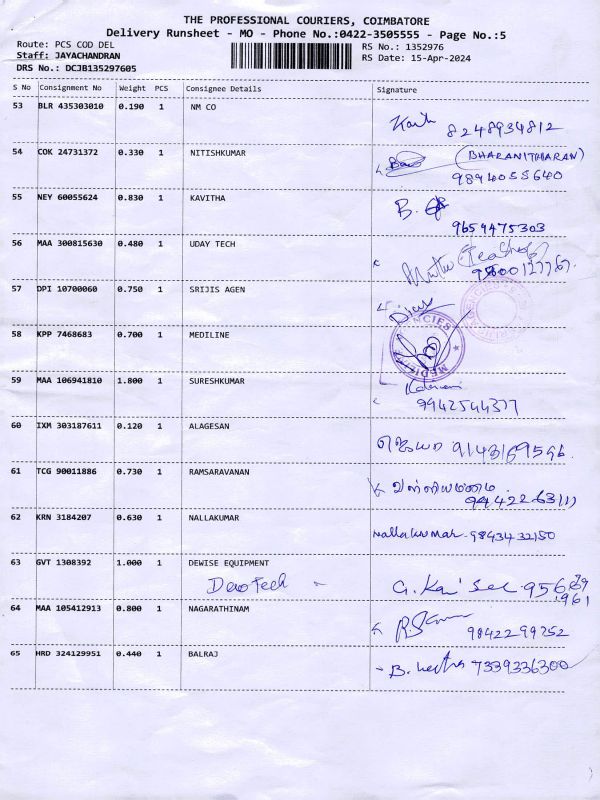 THE PROFESSIONAL COURIERS, COIMBATORE
Delivery Runsheet - MO - Phone No.:0422-3505555 - Page No.:5
Route: PCS COD DEL
RS No.: 1352976
Staff: JAYACHANDRAN
RS Date: 15-Apr-2024
DRS No.: DCJB135297605
S No Consignment No Weight PCS Consignee Details Signature
53 BLR 435303010 0.190 1 NM CO
8248934812
54 COK 24731372 0.330 1 NITISHKUMAR
(BHARANITHARAN)
9894055640
55 NEY 60055624 0.830 1 KAVITHA
B.
9659475303
56 MAA 300815630 0.480 1 UDAY TECH
57 DPI 10700060 0.750 1 SRIJIS AGEN
58 KPP 7468683 0.700 1 MEDILINE
59 MAA 106941810 1.800 1 SURESHKUMAR
9942544377
60 IXM 303187611 0.120 1 ALAGESAN
ஜெயா
61 TCG 90011886 0.730 1 RAMSARAVANAN
வள்ளியம்மை
62 KRN 3184207 0.630 1 NALLAKUMAR
Nallakumar. 9843432150
63 GVT 1308392 1.000 1 DEWISE EQUIPMENT
64 MAA 105412913 0.800 1 NAGARATHINAM
9842299752
65 HRD 324129951 0.440 1 BALRAJ
7339336300